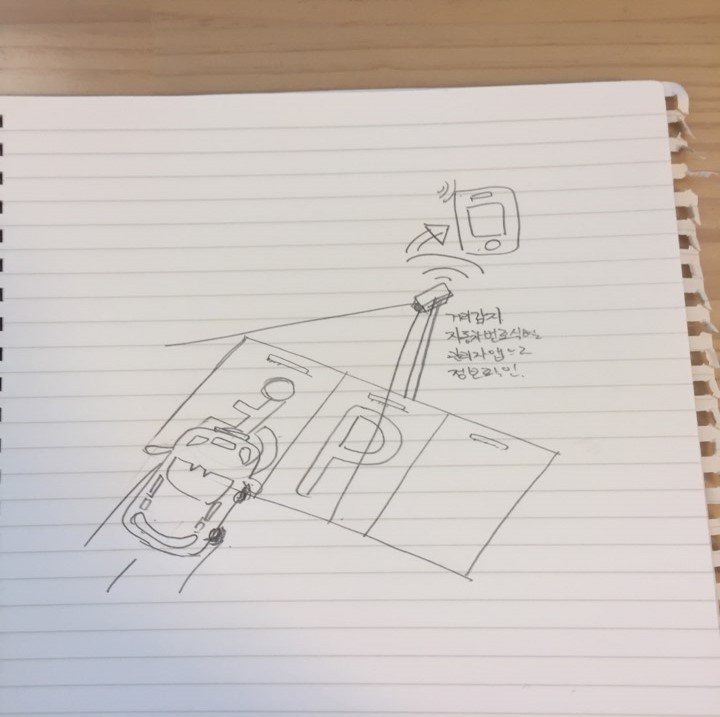 거리감지
자동차번호식별
관리자앱으로
정보확인.
P